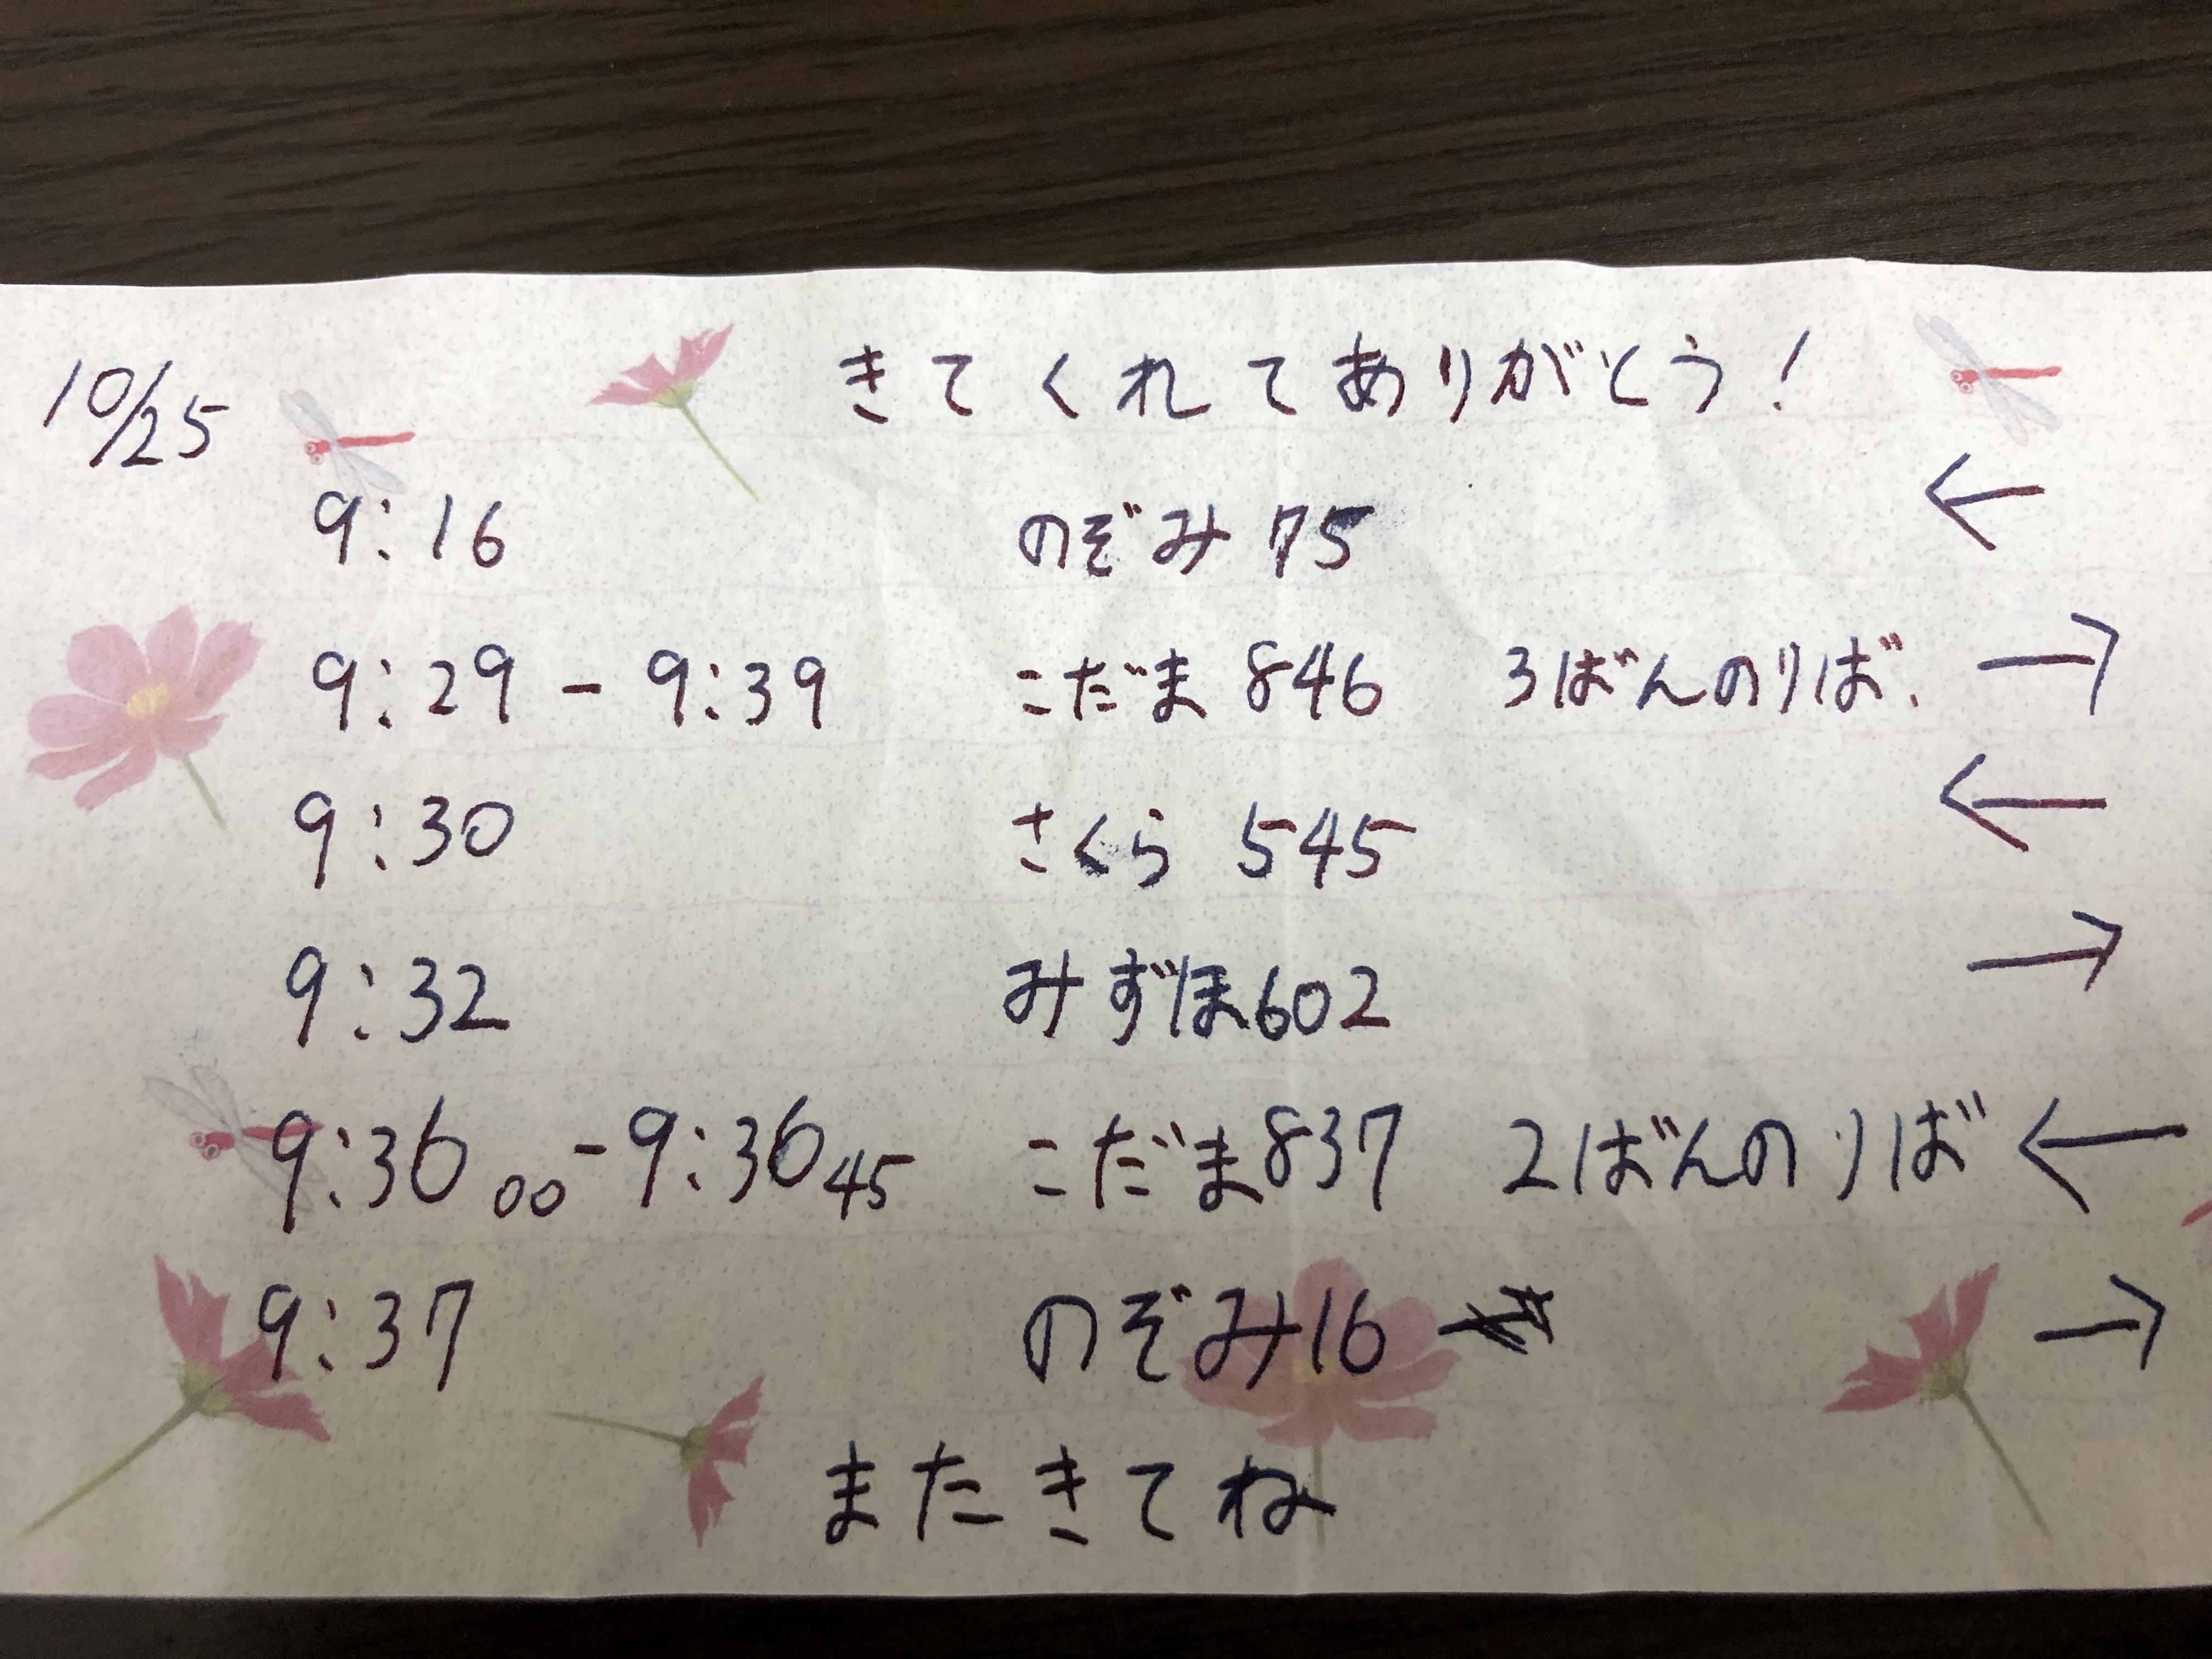 10/25 きてくれてありがとう!
9:16 のぞみ 75 ←
9:29 - 9:39 こだま 846 3ばんのりば. →
9:30 さくら 545 ←
9:32 みずほ602 →
9:36 00 - 9:36 45 こだま837 2ばんのりば ←
9:37 のぞみ16 →
またきてね